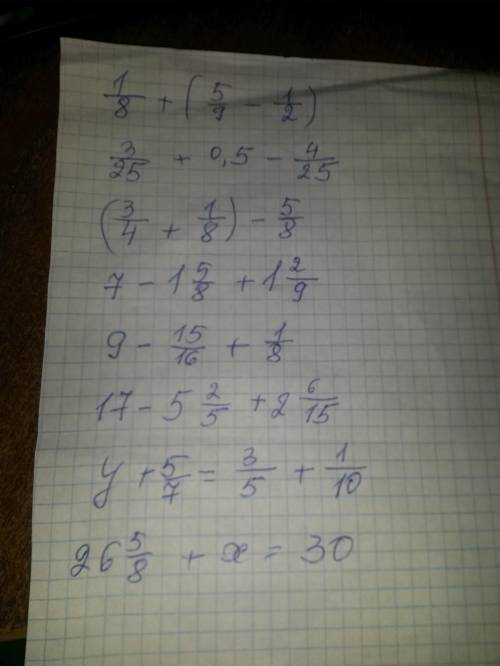 1/8 + (5/9 - 1/2)
3/25 + 0,5 - 4/25
(3/4 + 1/8) - 5/8
7 - 1 5/8 + 1 2/9
9 - 15/16 + 1/8
17 - 5 2/5 + 2 6/15
y + 5/7 = 3/5 + 1/10
26 5/8 + x = 30